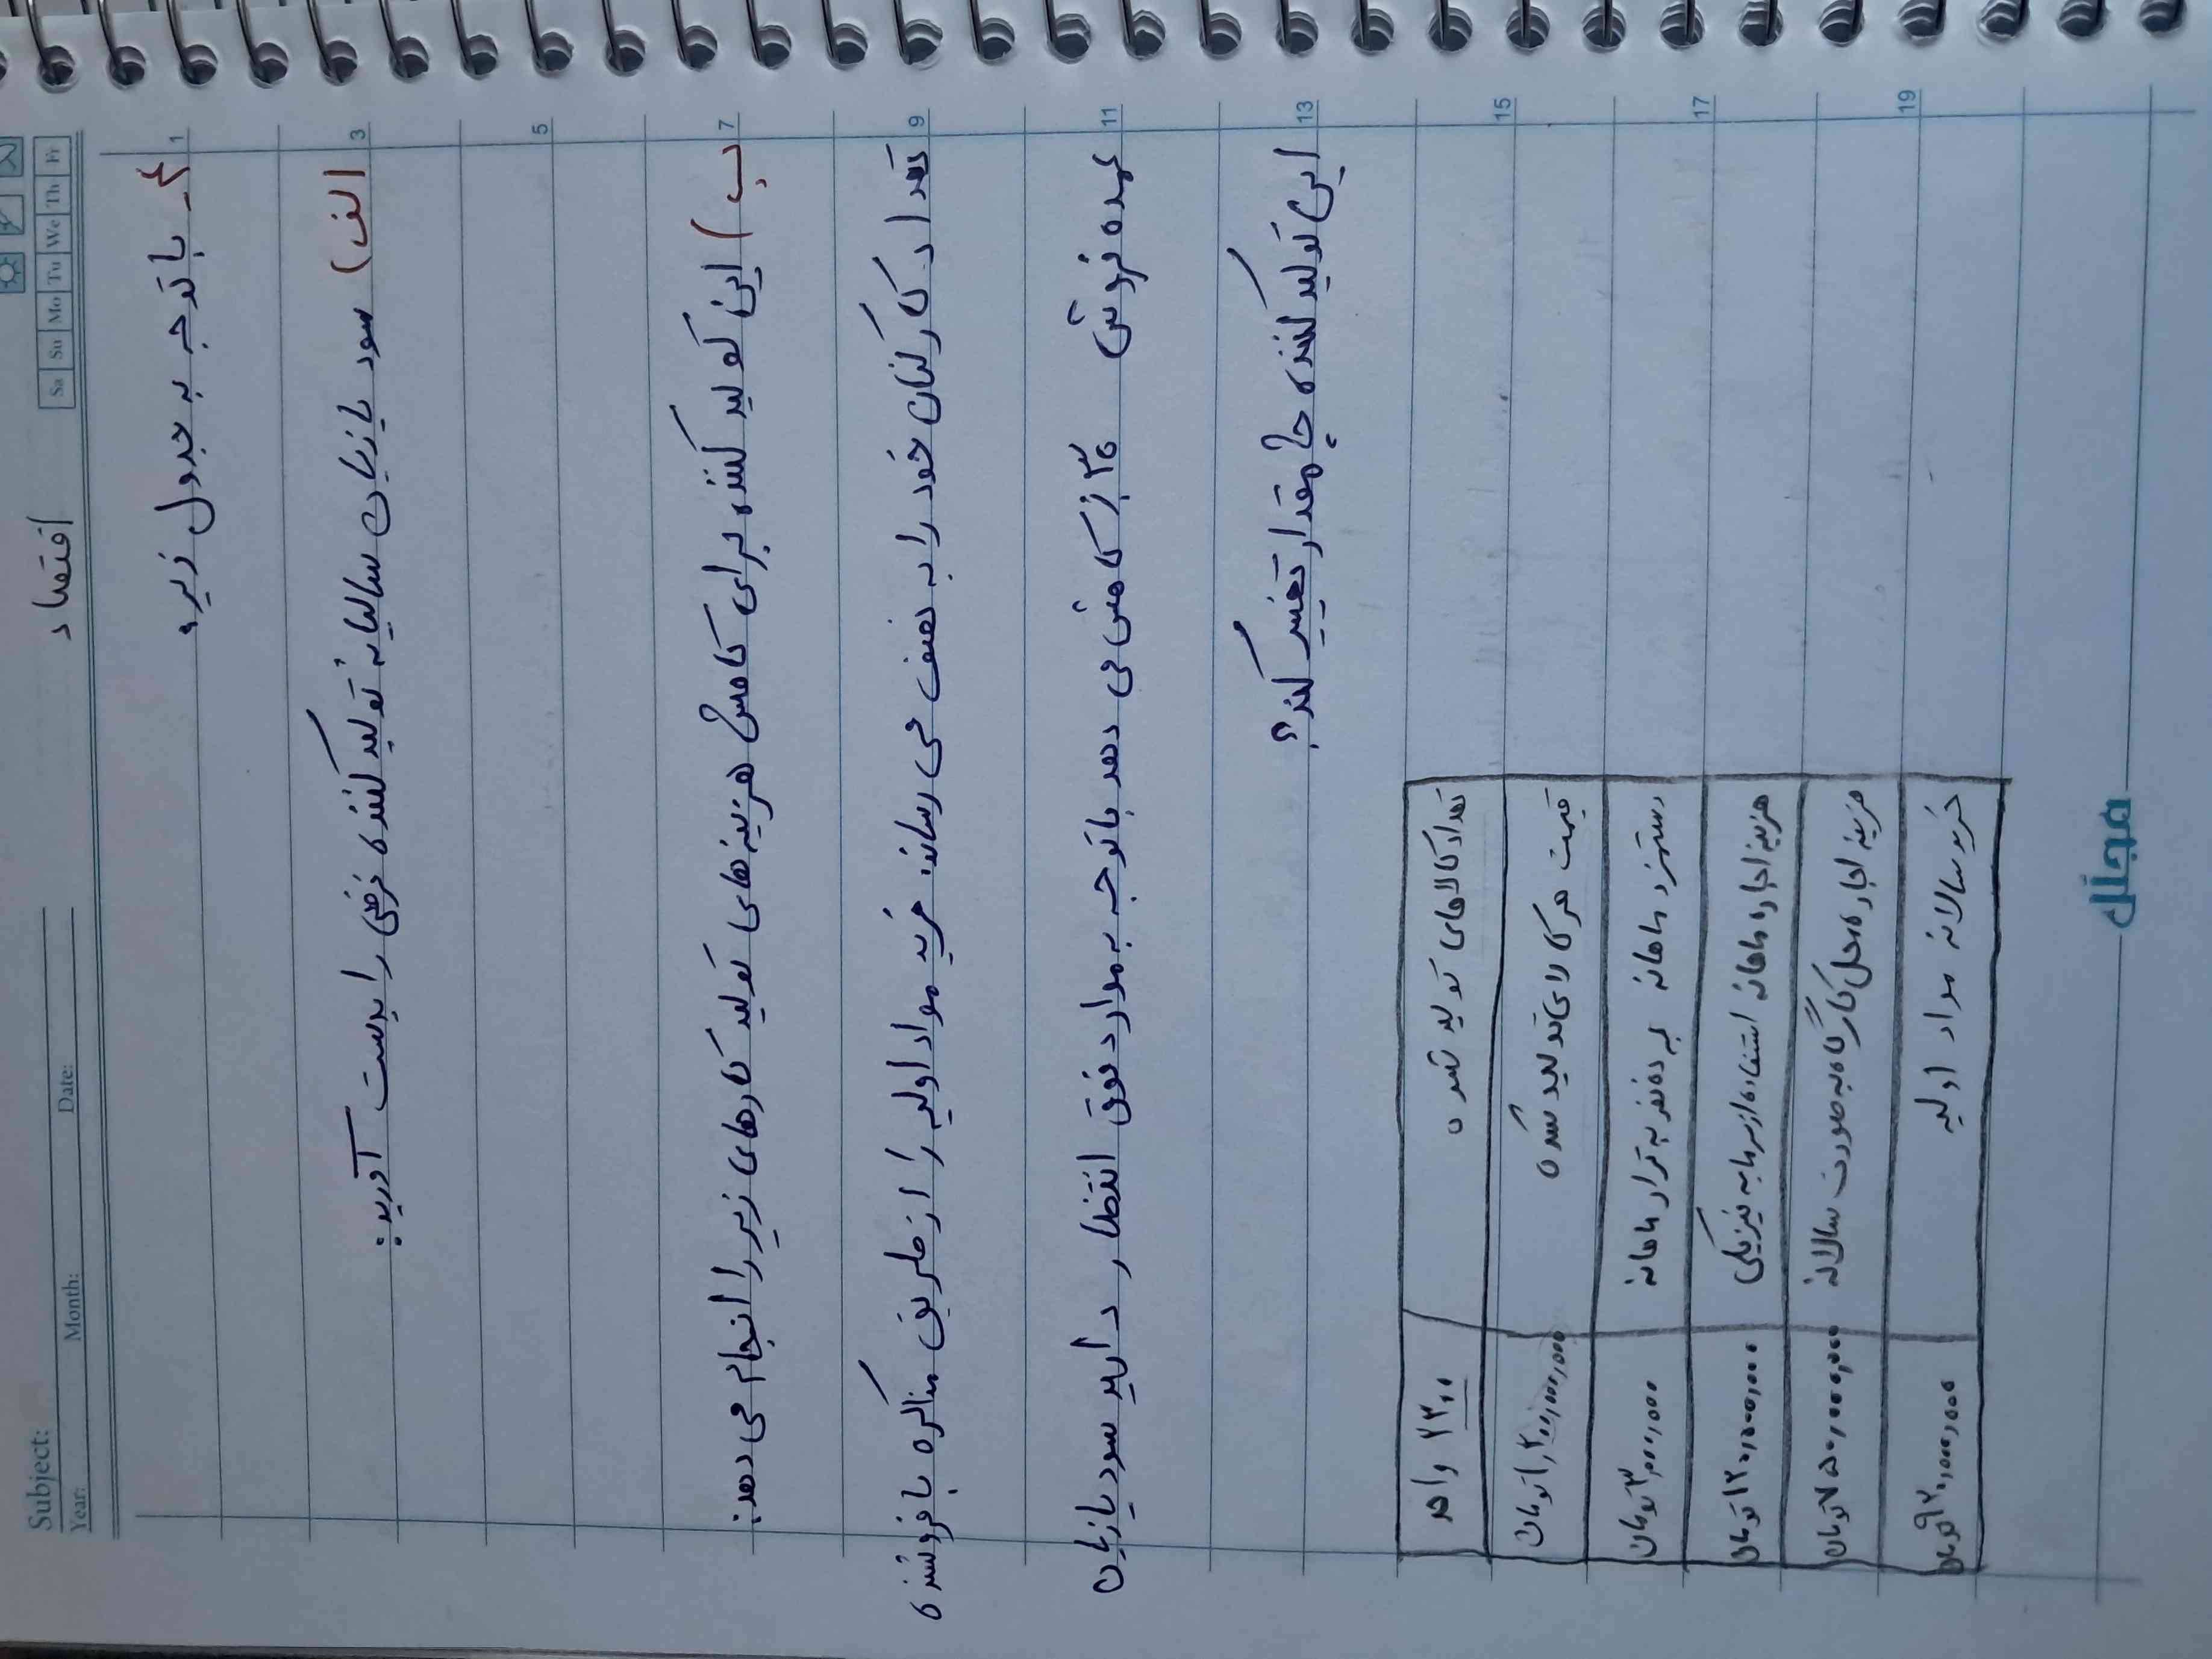 Subject:
Year: Month: Date:
اقتصاد
Sa Su Mo Tu We Th Fr
۴- با توجه به جدول زیر:
الف) سود یا زیان سالیانه تولید کننده فرضی را بدست آورید:
ب) این تولید کننده برای کاهش هزینه های تولید کارهای زیر را انجام می دهد:
تعداد کارکنان خود را به نصف می رساند. خرید مواد اولیه را از طریق مذاکره با فروشنده
عمده فروش ۳۰٪ کاهش می دهد با توجه به موارد فوق انتظار دارید سود یا زیان
این تولید کننده چه مقدار تغییر کند؟
تعداد کالاهای تولید شده ۲۳۰۰ واحد
قیمت هر کالای تولید شده تومان
دستمزد ماهانه به ده نفر به قرار ماهانه ۳,۰۰۰,۰۰۰ تومان
هزینه اجاره ماهانه استفاده از سرمایه فیزیکی ۱۲۰,۰۰۰,۰۰۰ تومان
هزینه اجاره محل کارگاه به صورت سالانه ۷۵۰,۰۰۰,۰۰۰ تومان
خرید سالانه مواد اولیه ۹۲۰,۰۰۰,۰۰۰ تومان
1
3
5
7
9
11
13
15
17
19
مجلل